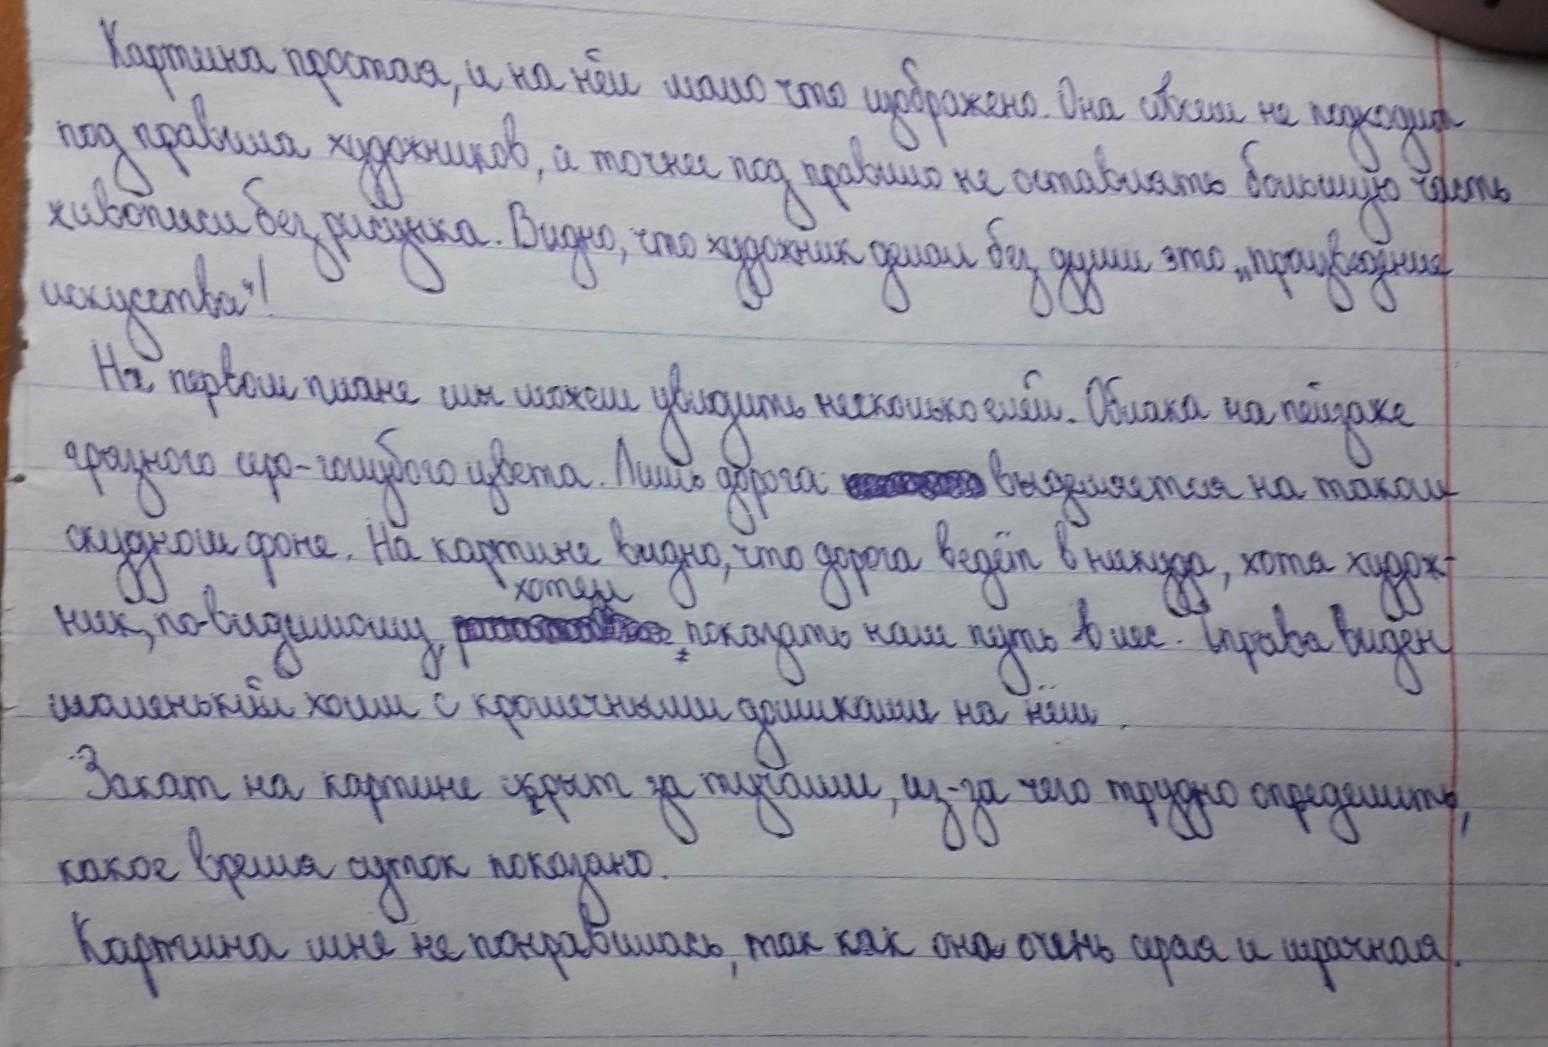 Картина простая, и на нём мало что изображено. Она совсем не подходит
под правила художников, а точнее под правило не оставлять большую часть
живописи без рисунка. Видно, что художник делал без души это „произведение
искусства"!
На первом плане мы можем увидить несколько елей. Облака на пейзаже
грязного серо-голубого цвета. Лишь дорога выделяется на таком
скудном фоне. На картине видно, что дорога ведёт в никуда, хотя худож-
хотел
ник, по-видимому, показать нам путь в лес. Справа виден
маленький холм с крошечными домиками на нём.
Закат на картине скрыт за тучами, из-за чего трудно определить,
какое время суток показано.
Картина мне не понравилась, так как она очень серая и мрачная.